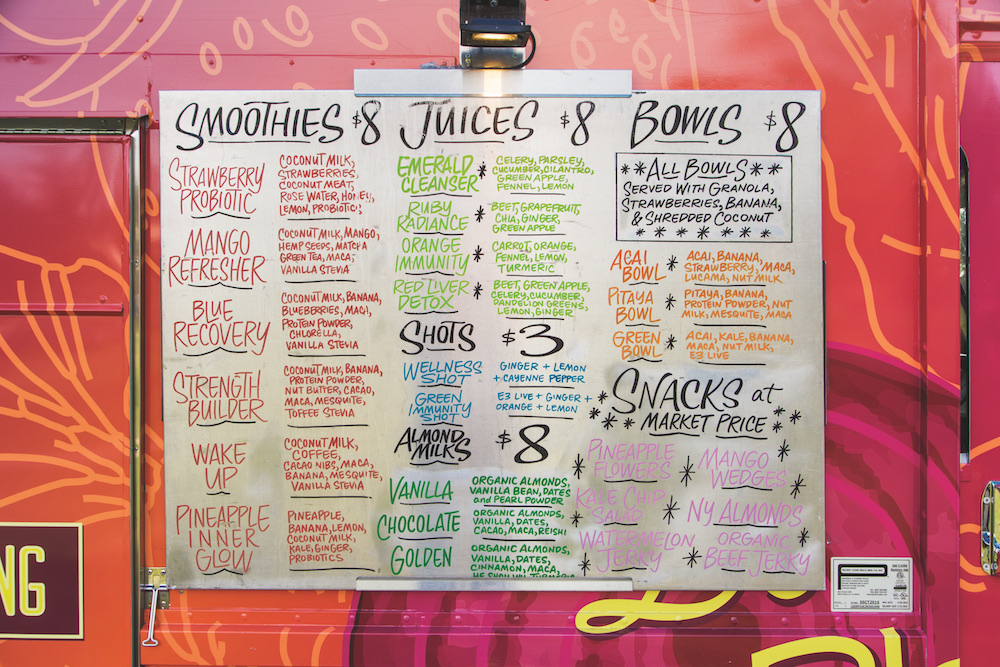 SMOOTHIES $8
STRAWBERRY
PROBIOTIC
COCONUT MILK,
STRAWBERRIES,
COCONUT MEAT,
ROSE WATER, HONEY,
LEMON, PROBIOTICS
MANGO
REFRESHER
COCONUT MILK, MANGO,
HEMP SEEDS, MATCHA
GREEN TEA, MACA,
VANILLA STEVIA
BLUE
RECOVERY
COCONUT MILK, BANANA,
BLUEBERRIES, MACA,
PROTEIN POWDER,
CHLORELLA,
VANILLA STEVIA
STRENGTH
BUILDER
COCONUT MILK, BANANA,
PROTEIN POWDER,
NUT BUTTER, CACAO,
MACA, MESQUITE,
TOFFEE STEVIA
WAKE
UP
COCONUT MILK,
COFFEE,
CACAO NIBS, MACA,
BANANA, MESQUITE,
VANILLA STEVIA
PINEAPPLE
INNER
GLOW
PINEAPPLE,
BANANA, LEMON,
COCONUT MILK,
KALE, GINGER,
PROBIOTICS
JUICES $8
EMERALD
CLEANSER *
CELERY, PARSLEY,
CUCUMBER, CILANTRO,
GREEN APPLE,
FENNEL, LEMON
RUBY
RADIANCE *
BEET, GRAPEFRUIT,
CHIA, GINGER,
GREEN APPLE
ORANGE
IMMUNITY *
CARROT, ORANGE,
FENNEL, LEMON,
TURMERIC
RED LIVER
DETOX *
BEET, GREEN APPLE,
CELERY, CUCUMBER,
DANDELION GREENS,
LEMON, GINGER
SHOTS $3
WELLNESS
SHOT
GINGER + LEMON
+ CAYENNE PEPPER
GREEN
IMMUNITY
SHOT
E3 LIVE + GINGER +
ORANGE + LEMON
ALMOND
MILKS $8
VANILLA
ORGANIC ALMONDS,
VANILLA BEAN, DATES
and PEARL POWDER
CHOCOLATE
ORGANIC ALMONDS,
VANILLA, DATES,
CACAO, MACA, REISHI
GOLDEN
ORGANIC ALMONDS,
VANILLA, DATES,
CINNAMON, MACA,
BOWLS $8
** ALL BOWLS **
SERVED WITH GRANOLA,
STRAWBERRIES, BANANA,
& SHREDDED COCONUT
ACAI
BOWL *
ACAI, BANANA,
STRAWBERRY, MACA,
LUCAMA, NUT MILK
PITAYA
BOWL *
PITAYA, BANANA,
PROTEIN POWDER, NUT
MILK, MESQUITE, MACA
GREEN
BOWL *
ACAI, KALE, BANANA,
MACA, NUT MILK,
E3 LIVE
SNACKS at
MARKET PRICE
PINEAPPLE
FLOWERS
MANGO
WEDGES
KALE CHIP
SALAD
NY ALMONDS
WATERMELON
JERKY
ORGANIC
BEEF JERKY
NG